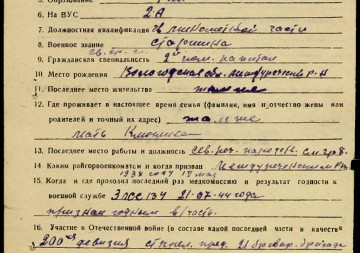 6. На ВУС 2А
7. Должностная квалификация в минометной части
8. Военное звание старшина
9. Гражданская специальность 2й пом. капитан
10. Место рождения Вологодская обл. Междуреченский р-н
11. Последнее место жительства там же
12. Где проживает в настоящее время семья (фамилия, имя и отчество жены или
родителей и точный их адрес) там же
мать
13. Последнее место работы и должность Сев. реч. пароход.
14. Каким райгорвоенкоматом и когда призван Междуреченским РВК
1938 году
15. Когда и где проходил последний раз медкомиссию и результат годности к
военной службе ЭЛСС 134 21-07-44 года
признан годным в/части.
16. Участие в Отечественной войне (в составе какой последней части и в качестве
200ая дивизия стрелк. пред. 21